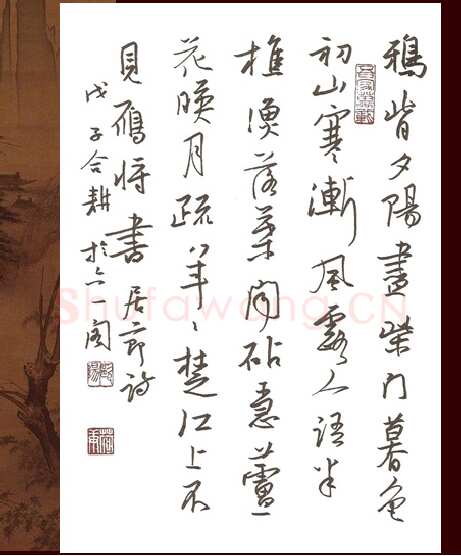 鴉背夕陽盡柴门暮色
初山寒漸風露人語半
樵漁落葉聞砧急蘆
花暎月疏年〻楚江上不
見鴈將書 居節詩
戊子合耕於六一阁
Shufawang.CN